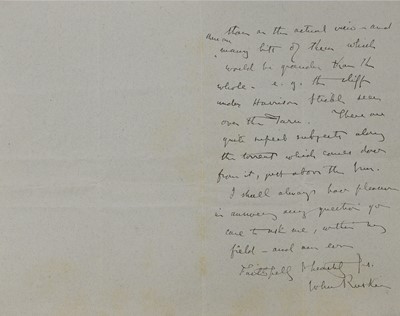 than in the actual view - and
many bits of them which
would be grander than the
whole - e.g. the cliff
under Harrison Stickle seen
over the Tarn. There are
quite superb subjects along
the torrent which comes down
from it, just above the Inn.
I shall always have pleasure
in answering any question you
care to ask me, within my
field - and am ever
Faithfully & heartily Yrs.
John Ruskin